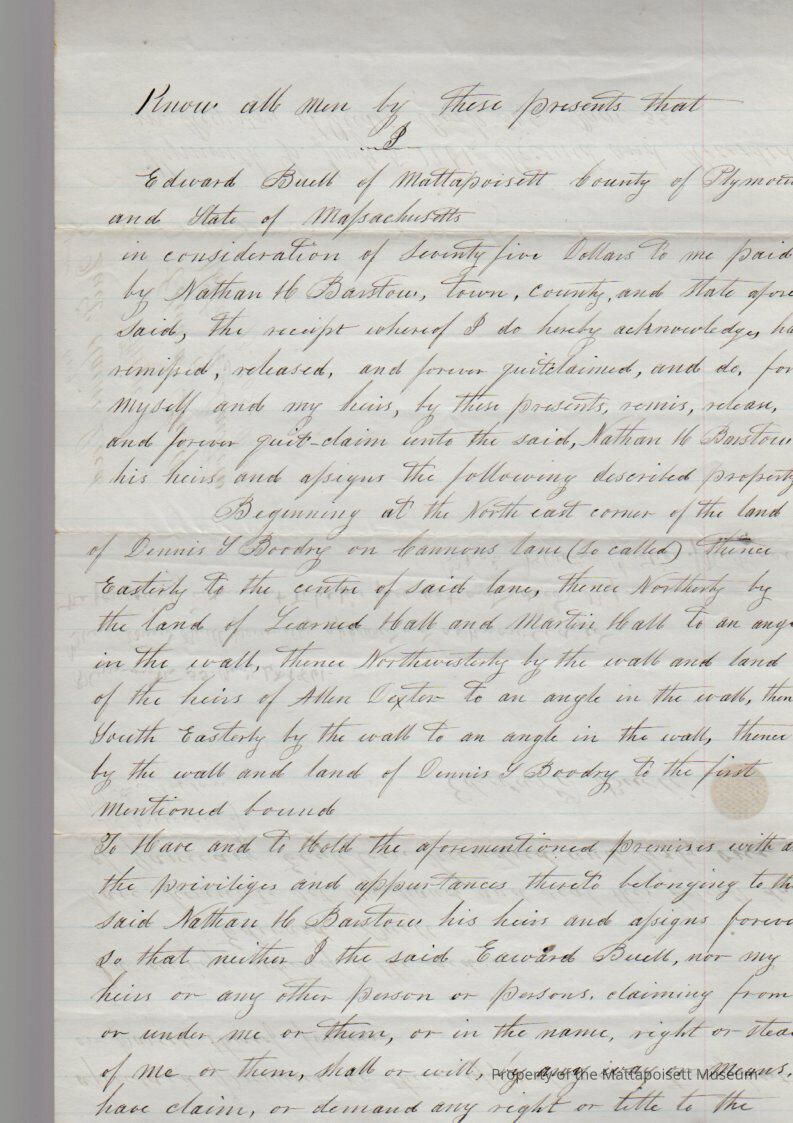 Know all men by these presents that
I
Edward Buell of Mattapoisett County of Plymou
and State of Massachusetts
in consideration of Seventy five Dollars to me paid
by Nathan H Barstow, town, county, and State afore
said, the receipt whereof I do hereby acknowledge, ha
remised, released, and forever quitclaimed, and do, for
myself and my heirs, by these presents, remis, release,
and forever quit-claim unto the said, Nathan H Barstow
his heirs and assigns the following described property
Beginning at the North east corner of the land
of Dennis S Boodry on Cannons lane (so called) thence
Easterly to the centre of said lane, thence Northerly by
the land of Learned Hall and Martin Hall to an ang
in the wall, thence Northwesterly by the wall and land
of the heirs of Allen Dexter to an angle in the wall, then
South Easterly by the wall to an angle in the wall, thence
by the wall and land of Dennis S Boodry to the first
mentioned bound
To Have and to Hold the aforementioned premises with a
the priviliges and appurtances thereto belonging to th
said Nathan H Barstow his heirs and assigns foreve
so that neither I the said Edward Buell, nor my
heirs or any other person or persons, claiming from
or under me or them, or in the name, right or stea
of me or them, shall or will, by any way or means,
have claim, or demand any right or title to the
Property of the Mattapoisett Museum